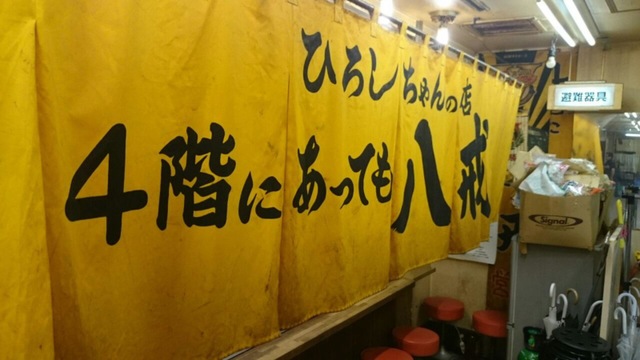 ひろしちゃんの店
4階にあっても八戒
避難器具
Signal